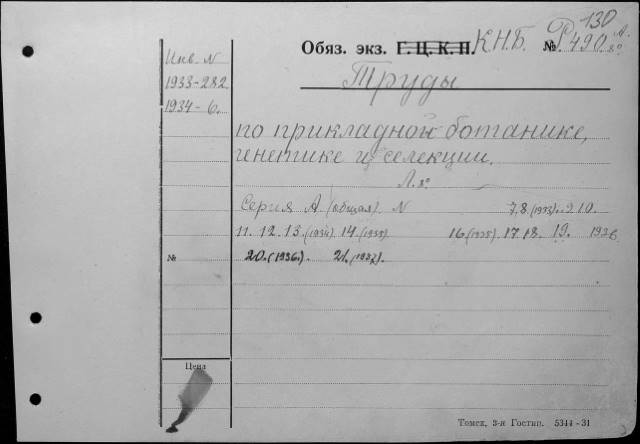 130
Обяз. экз. Г. Ц. К. П. К.Н.Б. № P.490. A. 8°
Инв. N
1933-282
1934-6.
Труды
по прикладной ботанике,
генетике и селекции.
Л. 8°
Серия А (общая). N 7,8.(1933)..9.10.
11. 12. 13.(1934) 14.(1935) 16(1935). 17 18. 19. 1936
№ 20.(1936.). 21.(1937).
Цена
Томск, 3-я Гостип. 5344-31